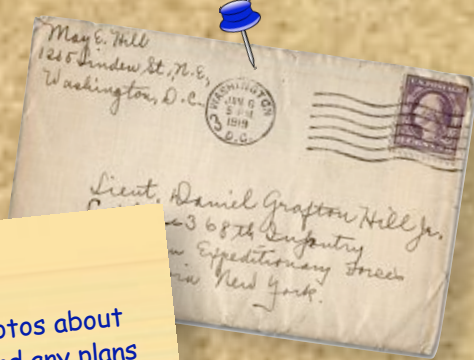 May E. Hill
1215 Linden St., N.E,
Washington, D.C.
WASHINGTON
JAN 6
5 PM
1919
D.C.
Lieut, Daniel Grafton Hill Jr.
368th Infantry
Expeditionary Forces
New York.
otos about
nd any plans